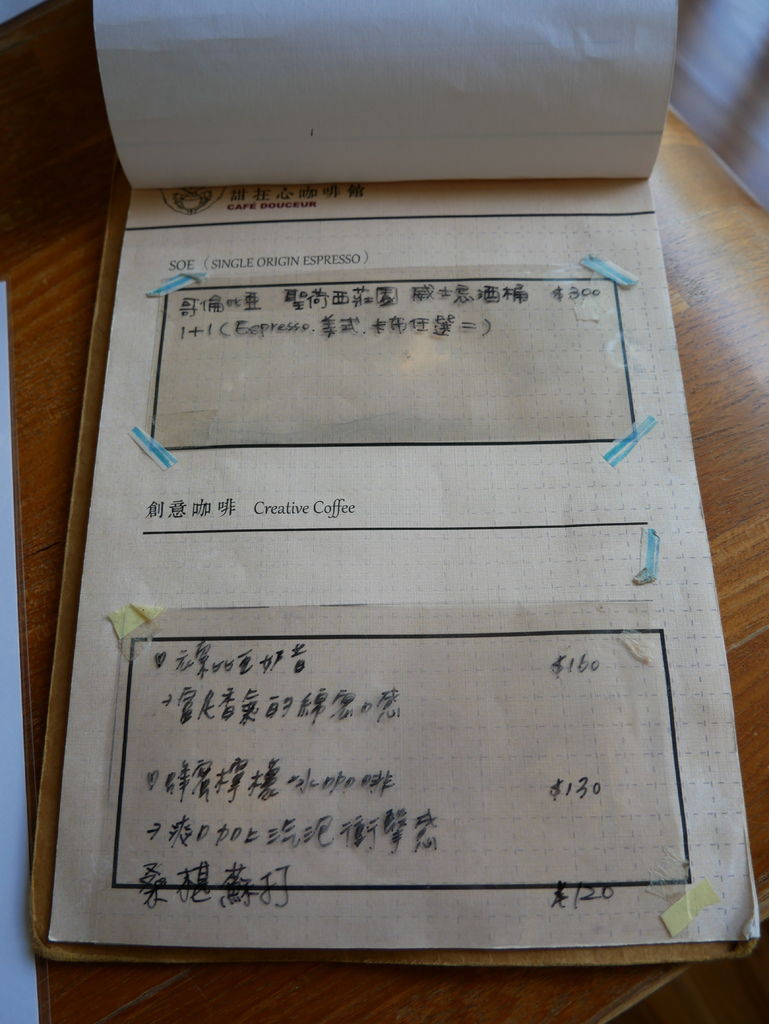 甜在心咖啡館
CAFÉ DOUCEUR
SOE （SINGLE ORIGIN ESPRESSO）
哥倫比亞 聖荷西莊園 威士忌酒桶 $300
1+1（Espresso. 美式. 卡布任選二）
創意咖啡 Creative Coffee
奶昔 $160
香氣的綿密口感
蜂蜜檸檬冰咖啡 $130
→爽口加上汽泡衝擊感
桑椹蘇打 $120